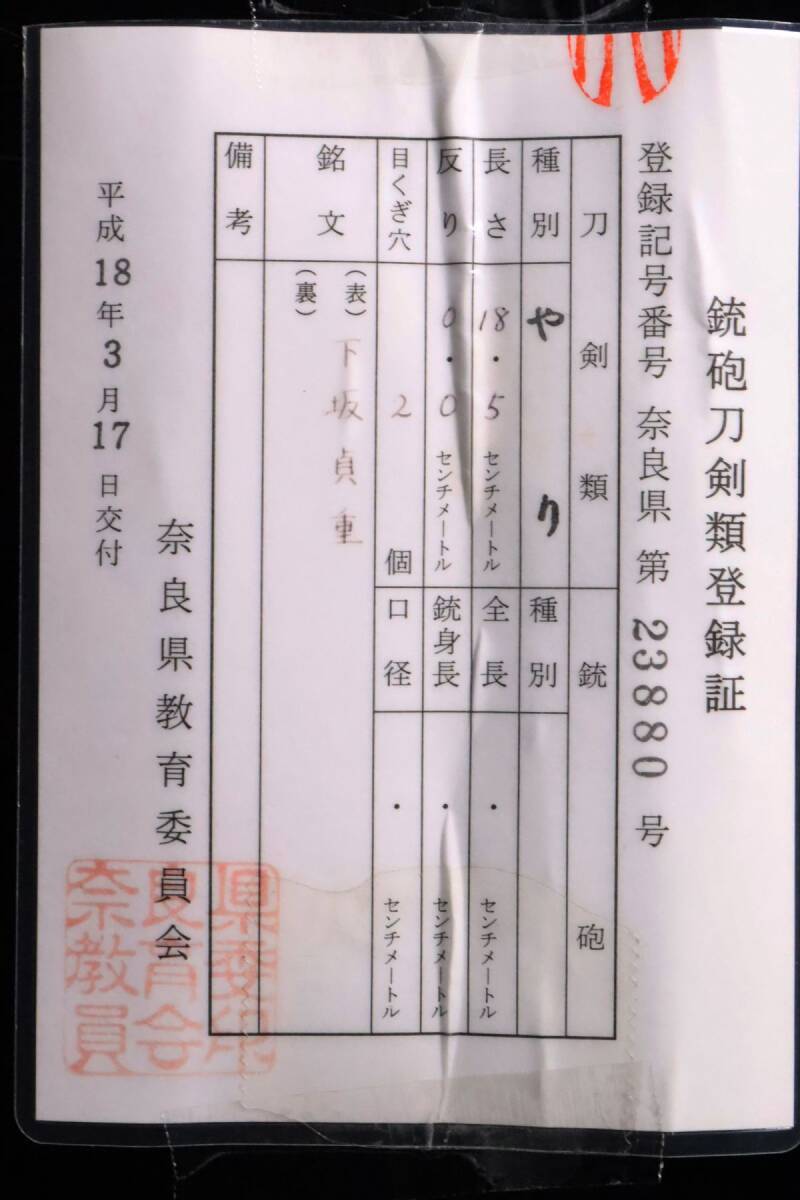 銃砲刀剣類登録証
登録記号番号 奈良県 第 23880 号
刀剣類
銃砲
種別 やり
種別
長さ 18・5 センチメートル
全長 ・ センチメートル
反り 0・0 センチメートル
銃身長 ・ センチメートル
目くぎ穴 2 個
口径 ・ センチメートル
銘文
(表) 下坂貞重
(裏)
備考
奈良県教育委員会
平成18年3月17日交付
奈良県教育委員会印